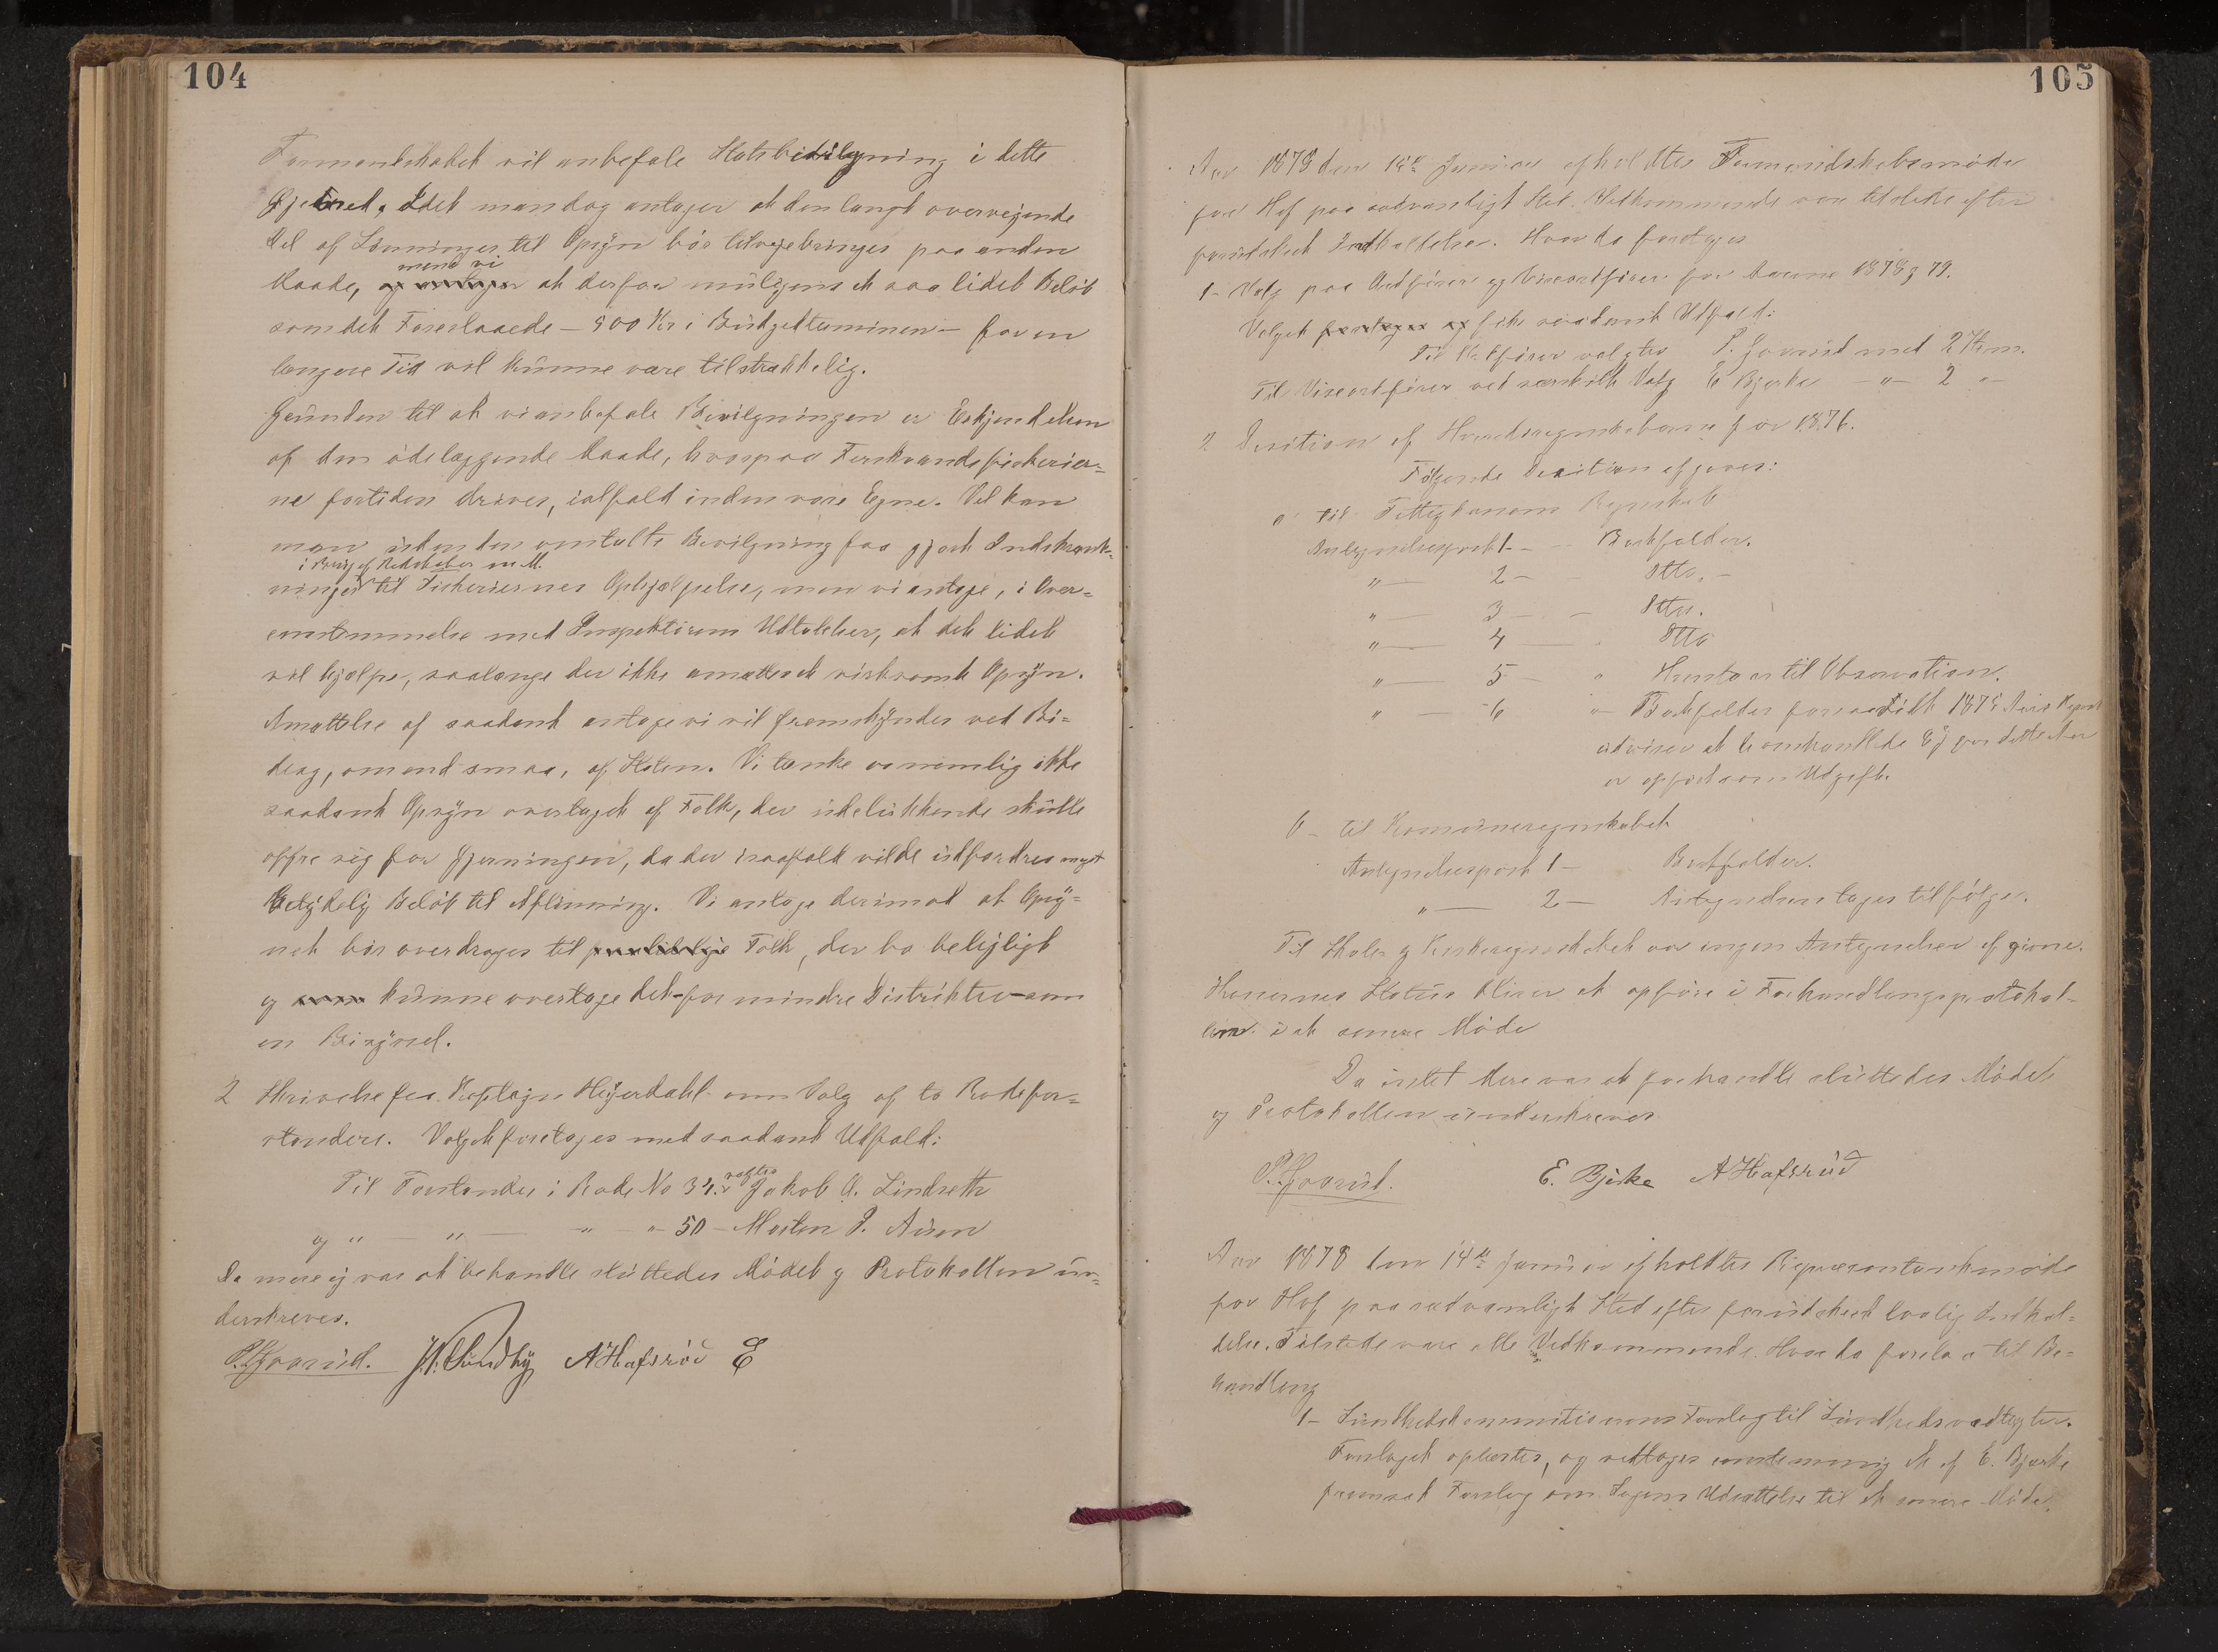 104
Formandskabet vil anbefale Statsbevilgning i dette
Øjemed, idet man dog antager at den langt overvejende
del af Lønninger til Opsÿn bør tilvejebringes paa anden
Maade, og antager mens vi at derfor muligens et saa lidet Beløb
som det Foreslaaede – 500 Kr i Budgetterminen – for en
længere Tid vil kunne være tilstrækkelig.
Grunden til at vi anbefale Bevilgningen er Erkjendelsen
af den ødelæggende Maade, hvorpaa Ferskvandsfiskerier=
ne fortiden drives, ialfald inden vore Egne. Vel kan
man uden den omtalte Bevilgning faa gjort Indskrænk=
i Brug af Redskaber m M.
ninger til Fiskeriernes Ophjælpelse, men vi antage, i Over=
enstemmelse med Inspektørens Udtalelser, at det lidet
vil hjælpe, saalænge der ikke ansættes et virksomt Opsÿn.
Ansættelse af saadant antage vi vil fremskÿndes ved Bi=
drag, omend smaa, af Staten. Vi tænke os nemlig ikke
saadant Opsÿn overtaget af Folk, der udelukkende skulle
offre sig for Gjerningen, da der isaafald vilde udfordres meget
betÿdelig Beløb til Aflønning. Vi antage derimod at Opsÿ=
net bør overdrages til Folk, der bo belejligt
og kunne overtage det – for mindre Distrikter – som
en Bisÿssel.
2 Skrivelse fra Kaptejn Heÿerdahl om Valg af to Rodefor=
standere. Valget foretages med saadant Udfald:
Til Forstander i Rode No 34. valgtes Jakob A. Lindseth
og " — " — " " 50 – Morten P.
Da mere ej var at behandle sluttedes Mødet og Protokollen un=
derskreves.
P. Gaarud. J. N. Sundbÿ A Hafsrød E
105
Aar 1878 den 14de Januar afholdtes Formandskabsmøde
for Hof paa sædvanligt Sted. Vedkommende vare tilstede efter
forudskeet Indkaldelse. Hvor da foretages
1– Valg paa Ordfører og Viceordfører for Aarene 1878 og 79.
Valget foretages og fik saadant Udfald:
Til Ordfører valgtes P. Gaarud med 2 Stem.
Til Viceordfører ved særskilt Valg E Bjerke – " – 2 "–
2 Decition af Herredsregnskaberne for 1876.
Følgende Decition afgives:
a til Fattigkassens Regnskab
Antegnelsespost 1 – – Bortfalder.
" — 2 – – Dtto. –
" — 3 — – Dtto.
" — 4 — . Dtto
" — 5 — " Henstaar til Observation.
" — 6 " Bortfalder forsaavidt 1875 Aars Regnsk
udviser at benævnte for dette Aar
er opført som Udgift.
b – til Komuneregnskabet
Antegnelsespost 1 – Bortfalder.
" — 2 — Antegnelsen tages tilfølge.
Til Skole og Kirkeregnskabet var ingen Antegnelser afgivne.
Kassernes Status bliver at opføre i Forhandlingsprotokol=
len i et senere Møde
Da intet mere var at forhandle sluttedes Mødet
og Protokollen underskreves
P. Gaarud. E. Bjerke A Hafsrud
Aar 1878 den 14de Januar afholdtes Repræsentantmøde
for Hof paa sædvanligt Sted efter forudskeet lovlig Indkal=
delse. Tilstede vare alle Vedkommende. Hvor da forelaa til Be=
handling
1– Sundhedskommitionens Forslag til Sundhedsvedtægter.
Forslaget oplæstes, og vedtages enstemmig et af E. Bjerke
fremsat Forslag om Sagens Udsættelse til et senere Møde.